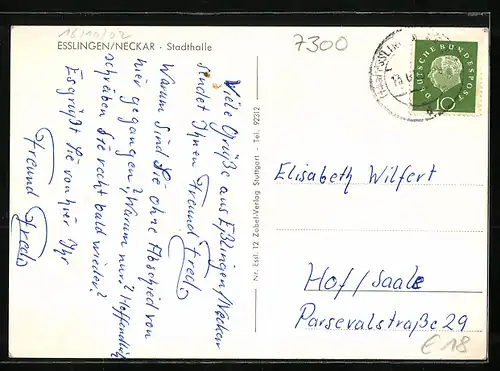 16/10/02
ESSLINGEN/NECKAR · Stadthalle
Viele Grüße aus Eßlingen/Neckar
sendet Ihnen Freund Fred.
Warum sind Sie ohne Abschied von
hier gegangen? Warum nur? Hoffendlich
schreiben Sie recht bald wieder?
Es grüßt Sie von hier Ihr
Freund Fred.
Nr. Essl. 12 Zobel-Verlag Stuttgart - Tel. 92312
7300
DEUTSCHE BUNDESPOST
10
Elisabeth Wilfert
Hof/Saale
Parsevalstraße 29
€ 18